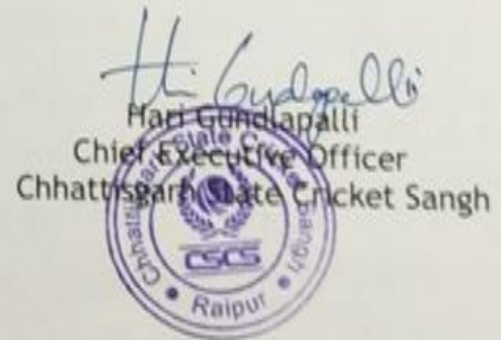 Hari Gundlapalli
Hari Gundlapalli
Chief Executive Officer
Chhattisgarh State Cricket Sangh
Chhattisgarh State Cricket Sangh
CSCS
Raipur